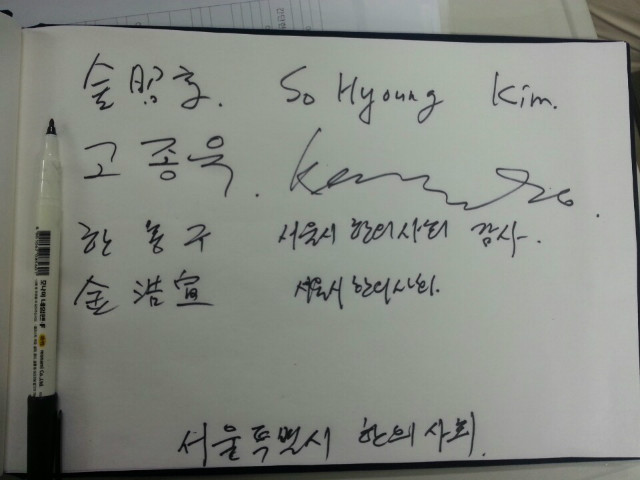 金昭亨. So Hyoung Kim.
고종욱.
한동구 서울시 한의사회 감사.
金浩宣 서울시 한의사회.
서울특별시 한의사회.
모나미 네임펜 F